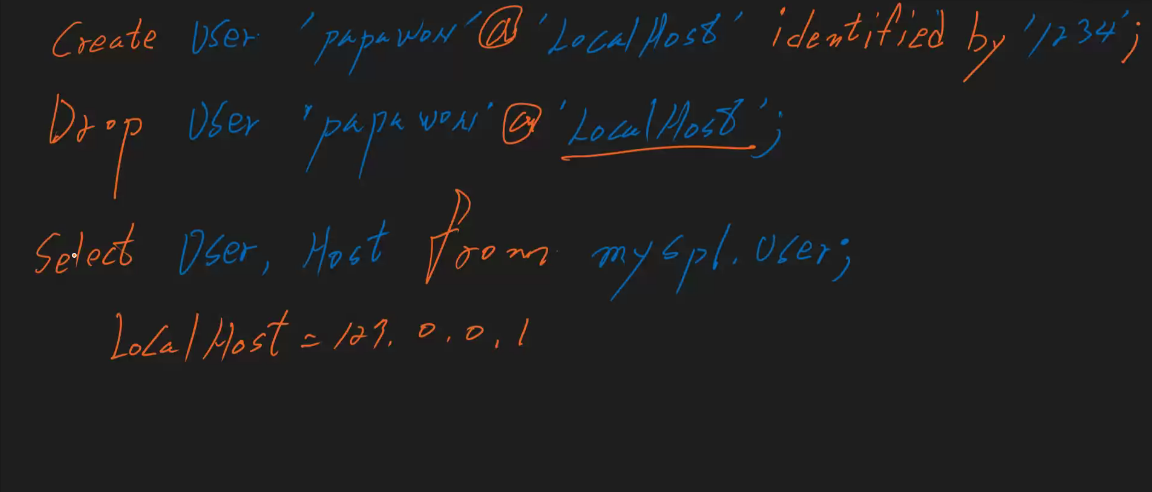 Create User 'papawon'@'LocalHost' identified by '1234';
Drop User 'papawon'@'LocalHost';
Select User, Host from mysql.User;
LocalHost = 127.0.0.1